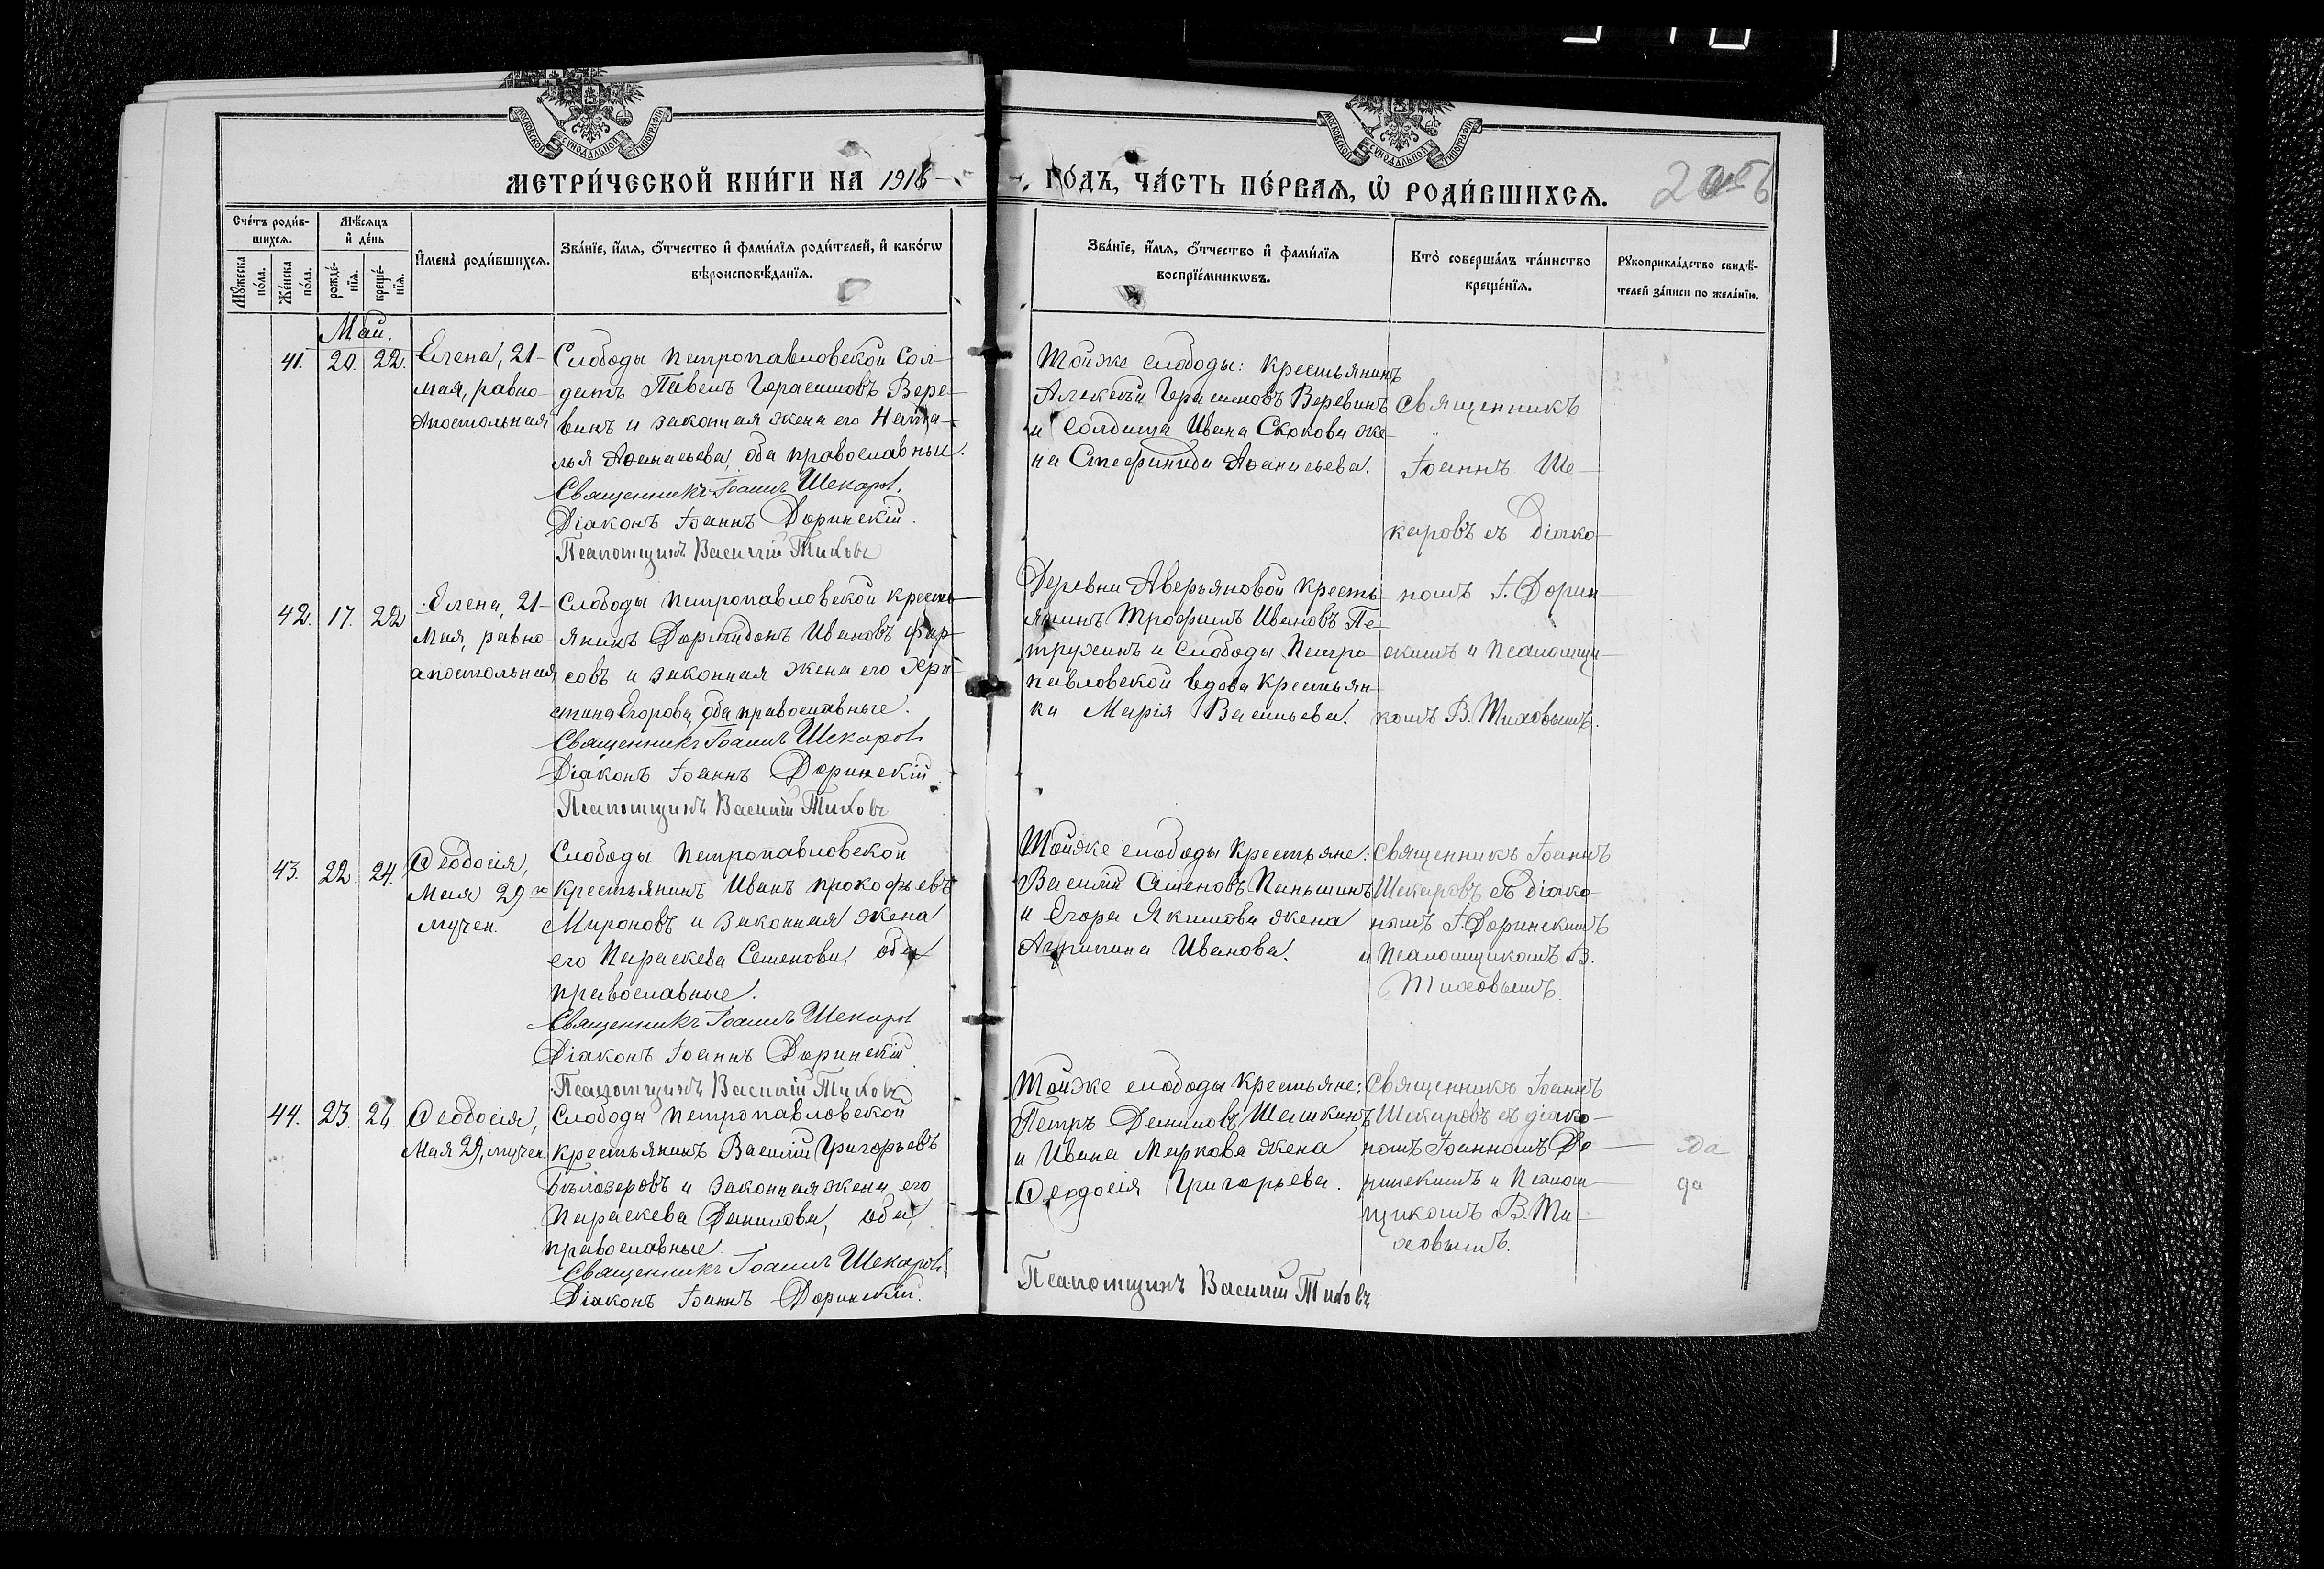 МЕТРИ́ЧЕСКОЙ КНИ́ГИ НА 1916
ГО́ДЪ, ЧА́СТЬ ПЕ́РВАЯ, Ѽ РОДИ́ВШИХСЯ.
Сче́тъ роди́в-
шихся.
Мѣ́сяцъ
и҆ де́нь
Мꙋ́жеска
по́ла.
Же́нска
по́ла.
рожде́-
нїя.
креще́-
нїя.
И҆мена̀ роди́вшихся.
Зва́нїе, и҆́мя, ѻ҆́тчество и҆ фами́лїя роди́телей, и҆ како́гѡ
вѣроисповѣ́данїя.
Зва́нїе, и҆́мя, ѻ҆́тчество и҆ фами́лїя
воспрїе́мникѡвъ.
Кто̀ соверша́лъ та́инство
креще́нїя.
Рꙋкоприкла́дство свидѣ́-
телей за́писи по жела́нїю.
Май.
41. 20. 22.
Елена, 21-
мая, равно-
апостольная
Слободы Петропавловской Сол-
датъ Павелъ Герасимовъ Вере-
винъ и законная жена его Ната-
лья Аѳанасьева, оба православные.
Священникъ Іоаннъ Шекаровъ.
Діаконъ Іоаннъ Доринскій.
Псаломщикъ Василій Тиховъ
Тойже слободы: крестьянинъ
Алексѣй Герасимовъ Веревинъ
и Солдата Ивана Скокова же-
на Стефанида Аѳанасьева.
Священникъ
Іоаннъ Ше-
каровъ съ діако-
номъ І. Дорин-
скимъ и псаломщи-
комъ В. Тиховымъ.
42. 17. 22
Елена, 21-
Мая, равно-
апостольная
Слободы Петропавловской кресть-
янинъ Дормидонъ Ивановъ Фир-
совъ и законная жена его Хри-
стина Егорова, оба православные.
Священникъ Іоаннъ Шекаровъ
Діаконъ Іоаннъ Доринскій
Псаломщикъ Василій Тиховъ
Деревни Аверьяновой кресть-
янинъ Трофимъ Ивановъ Пе-
трухинъ и слободы Петро
павловской вдова крестьян-
ка Марія Васильева.
43. 22. 24.
Ѳеодосія,
Мая 29го
мучен.
Слободы Петропавловской
крестьянинъ Иванъ Прокофьевъ
Мироновъ и законная жена
его Параскева Семенова, оба
православные.
Священникъ Іоаннъ Шекаровъ
Діаконъ Іоаннъ Доринскій
Псаломщикъ Василій Тиховъ
Тойже слободы крестьяне:
Василій Семеновъ Паньшинъ
и Егора Якимова жена
Агрипина Иванова.
Священникъ Іоаннъ
Шекаровъ съ діако-
номъ І. Доринскимъ
и псаломщикомъ В.
Тиховымъ.
44. 23. 26.
Ѳеодосія,
Мая 29, мучен.
Слободы Петропавловской
крестьянинъ Василій Григорьевъ
Бѣлозеровъ и законная жена его
Параскева Данилова, оба
православные.
Священникъ Іоаннъ Шекаровъ.
Діаконъ Іоаннъ Доринскій.
Тойже слободы крестьяне:
Петръ Даниловъ Шешкинъ
и Ивана Маркова жена
Ѳеодосія Григорьева.
Священникъ Іоаннъ
Шекаровъ съ діако-
номъ Іоанномъ До-
ринскимъ и псалом-
щикомъ В. Ти-
ховымъ.
да
да
Псаломщикъ Василій Тиховъ